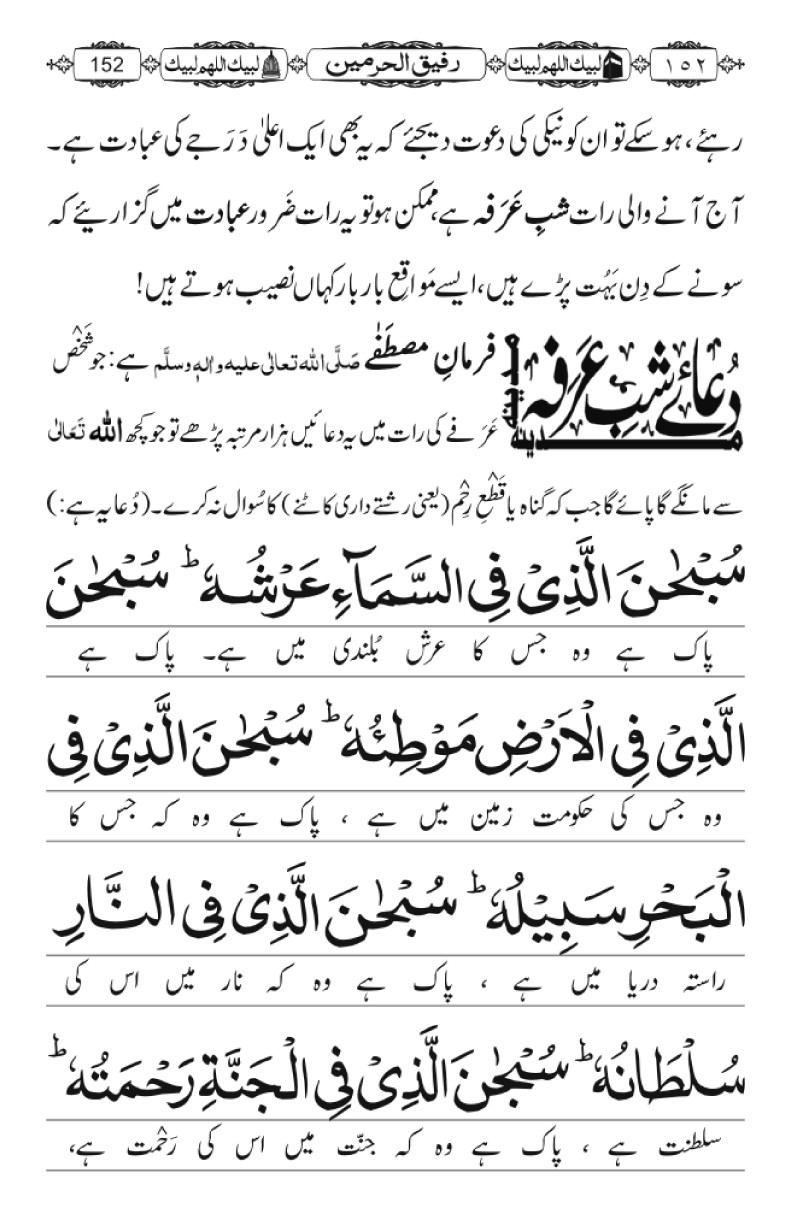 ١٥٢ لبيك اللهم لبيك رفیق الحرمین لبيك اللهم لبيك 152
رہئے، ہو سکے تو ان کو نیکی کی دعوت دیجئے کہ یہ بھی ایک اعلیٰ دَرَجے کی عبادت ہے۔
آج آنے والی رات شبِ عَرَفہ ہے، ممکن ہو تو یہ رات ضَرور عبادت میں گزاریئے کہ
سونے کے دِن بَہُت پڑے ہیں، ایسے مَواقِع بار بار کہاں نصیب ہوتے ہیں!
دُعائے شبِ عَرَفہ
مدینہ
مدینہ
فرمانِ مصطَفٰے صَلَّی اللہ تعالٰی علیہ واٰلہٖ وسلَّم ہے: جو شَخْص
عَرَفے کی رات میں یہ دعائیں ہزار مرتبہ پڑھے تو جو کچھ اللہ تَعَالٰی
سے مانگے گا پائے گا جب کہ گناہ یا قَطْعِ رِحْم (یعنی رشتے داری کاٹنے) کا سُوال نہ کرے۔ (دُعا یہ ہے:)
سُبْحٰنَ الَّذِیْ فِی السَّمَآءِ عَرْشُہٗ ؕ سُبْحٰنَ
پاک ہے وہ جس کا عرش بُلندی میں ہے۔ پاک ہے
الَّذِیْ فِی الْاَرْضِ مَوْطِئُہٗ ؕ سُبْحٰنَ الَّذِیْ فِی
وہ جس کی حکومت زمین میں ہے ، پاک ہے وہ کہ جس کا
الْبَحْرِ سَبِیْلُہٗ ؕ سُبْحٰنَ الَّذِیْ فِی النَّارِ
راستہ دریا میں ہے ، پاک ہے وہ کہ نار میں اس کی
سُلْطَانُہٗ ؕ سُبْحٰنَ الَّذِیْ فِی الْجَنَّۃِ رَحْمَتُہٗ ؕ
سلطنت ہے ، پاک ہے وہ کہ جنّت میں اس کی رَحْمت ہے،